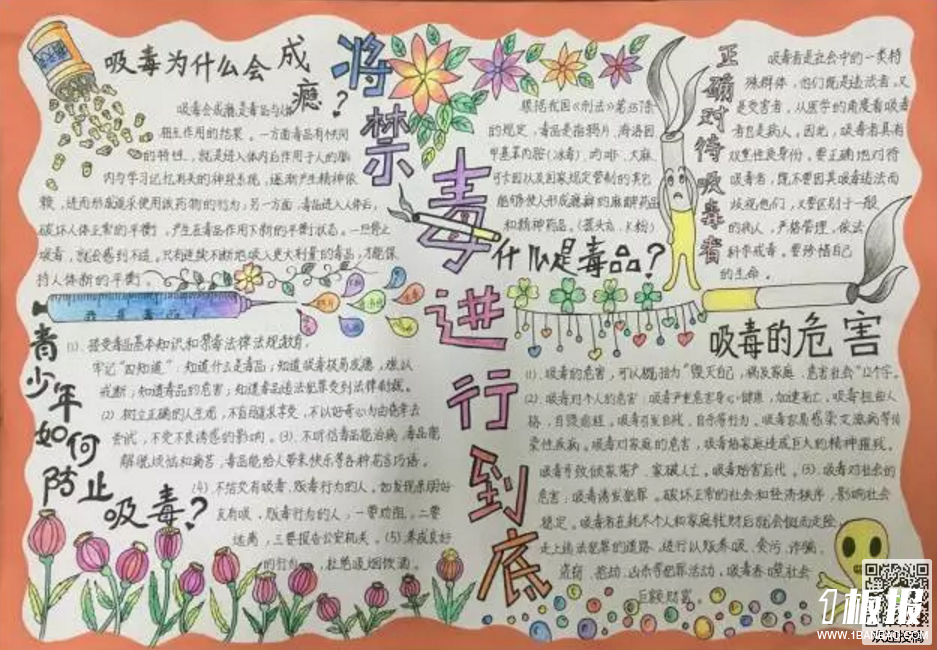 将禁毒进行到底
吸毒为什么会成瘾？
吸毒会成瘾是毒品与人体
相互作用的结果，一方面毒品有快间
的特性，就是进入体内后作用于人的脑
内与学习记忆有关的神经系统，逐渐产生精神依
赖，进而形成渴求使用该药物的行为；另一方面，毒品进入人体后，
破坏人体正常的平衡，产生在毒品作用下新的平衡状态。一旦停止
吸毒，就会感到不适，只有连续不断地吸入更大剂量的毒品，才能保
持人体新的平衡。
什么是毒品？
根据我国《刑法》第357条
的规定，毒品是指鸦片、海洛因、
甲基苯丙胺（冰毒）、吗啡、大麻、
可卡因以及国家规定管制的其它
能够使人形成瘾癖的麻醉药品
和精神药品。（摇头丸、K粉）
正确对待吸毒者
吸毒者是社会中的一类特
殊群体，他们既是违法者，又
是受害者，从医学的角度看吸毒
者也是病人，因此，吸毒者具有
双重性质身份。要正确地对待
吸毒者，既不要因其吸毒违法而
歧视他们，又要区别于一般
的病人，严格管理，依法
科学戒毒。要珍惜自己
的生命。
青少年如何防止吸毒？
(1)、接受毒品基本知识和禁毒法律法规教育。
牢记“四知道”：知道什么是毒品；知道吸毒极易成瘾，难以
戒断；知道毒品的危害；知道毒品违法犯罪受到法律制裁。
(2)、树立正确的人生观，不盲目追求享受，不以好奇心为由侥幸去
尝试，不受不良诱惑的影响。(3)、不听信毒品能治病，毒品能
解脱烦恼和痛苦，毒品能给人带来快乐等各种花言巧语。
(4)、不结交有吸毒、贩毒行为的人。如发现亲朋好
友有吸、贩毒行为的人，一要劝阻，二要
远离，三要报告公安机关。(5)、养成良好
的行为，杜绝吸烟饮酒。
吸毒的危害
(1)、吸毒的危害，可以概括为“毁灭自己，祸及家庭，危害社会”12个字。
(2)、吸毒对个人的危害，吸毒严重危害身心健康，加速死亡。吸毒扭曲人
格，自毁前程。吸毒引发自残、自杀等行为。吸毒容易感染艾滋病等传
染性疾病。吸毒对家庭的危害，吸毒给家庭造成巨大的精神摧残。
吸毒导致倾家荡产，家破人亡。吸毒贻害后代。(3)、吸毒对社会的
危害，吸毒诱发犯罪。破坏正常的社会和经济秩序，影响社会
稳定。吸毒者在耗尽个人和家庭钱财后就会铤而走险，
走上违法犯罪的道路，进行以贩养吸、贪污、诈骗、
盗窃、抢劫、凶杀等犯罪活动。吸毒吞噬社会
巨额财富
1板报
WWW.1BANBAO.COM